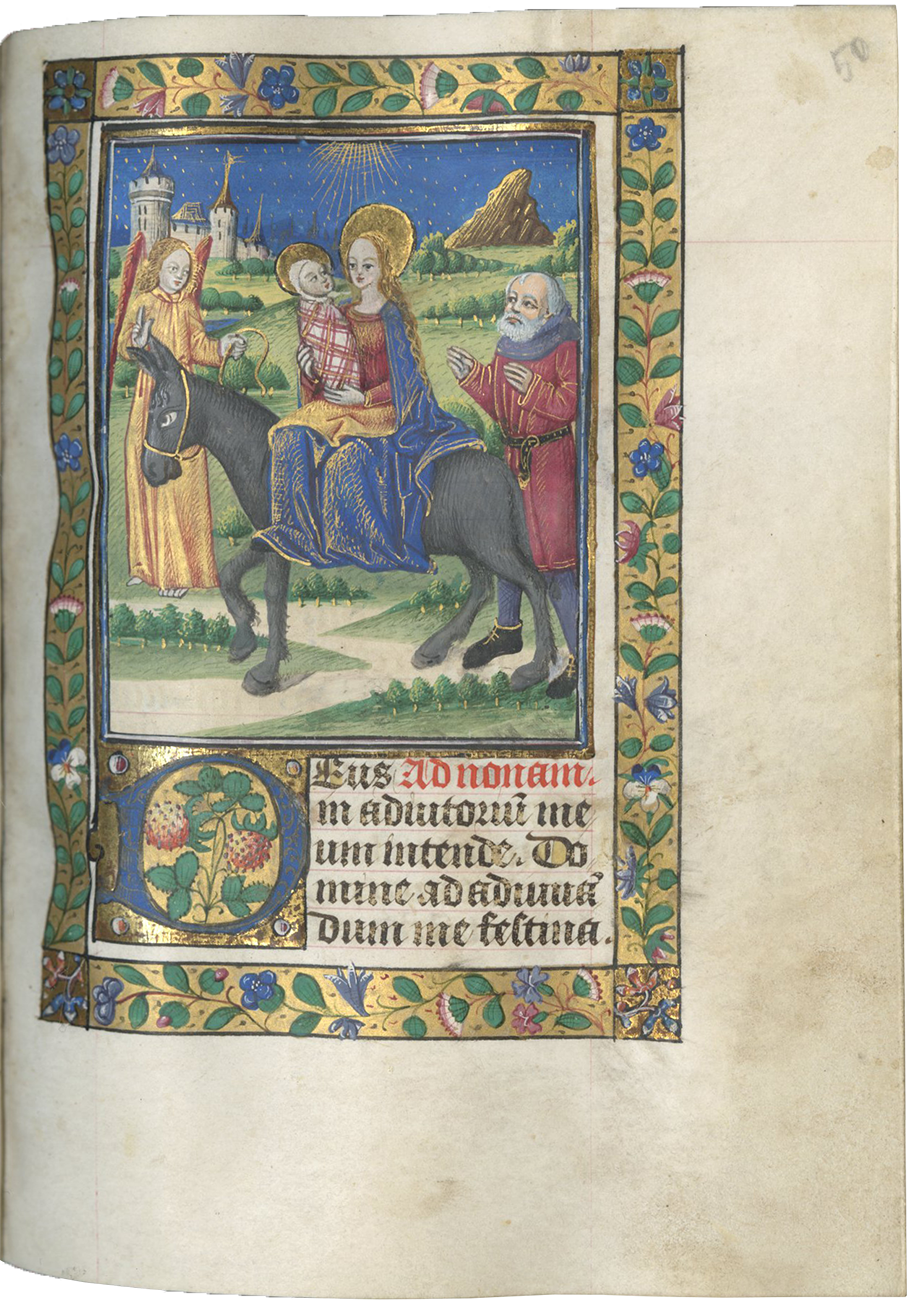 50
Eus Ad nonam.
in adiutoriū me
um intende. Do
mine ad adiuuā
dum me festina.